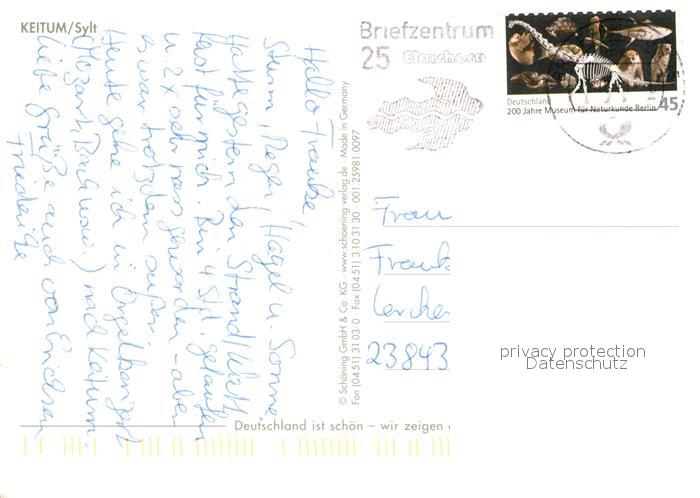 KEITUM/Sylt
Hallo Frauke,
Sturm, Regen, Hagel u. Sonne.
Hatte gestern den Strand/Watt
fast für mich. Bin 4 Std. gelaufen
u. 2x sehr nass geworden - aber
es war trotzdem super.
Heute gehe ich in Orgelkonzert
(Mozart, Bach usw.) nach Keitum.
Liebe Grüße auch von
Friederike
© Schöning GmbH & Co. KG · www.schoening-verlag.de · Made in Germany
Fon (04 51) 31 03-0 · Fax (04 51) 3 10 31 30 001 25981 0097
Briefzentrum
25 Elmshorn
Deutschland
200 Jahre Museum für Naturkunde Berlin 45
Frau
Lerche
23843
privacy protection
Datenschutz
Deutschland ist schön – wir zeigen